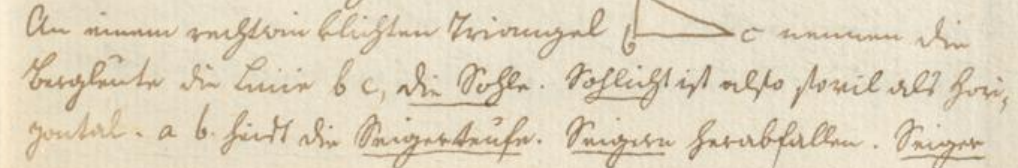 An einem rechtwinklichten Triangel b c nennen die
Bergleute die Linie b c, die Sohle. Sohlicht ist also soviel als hori-
zontal. a b. heist die Seigerteufe. Seigern herabfallen. Seiger